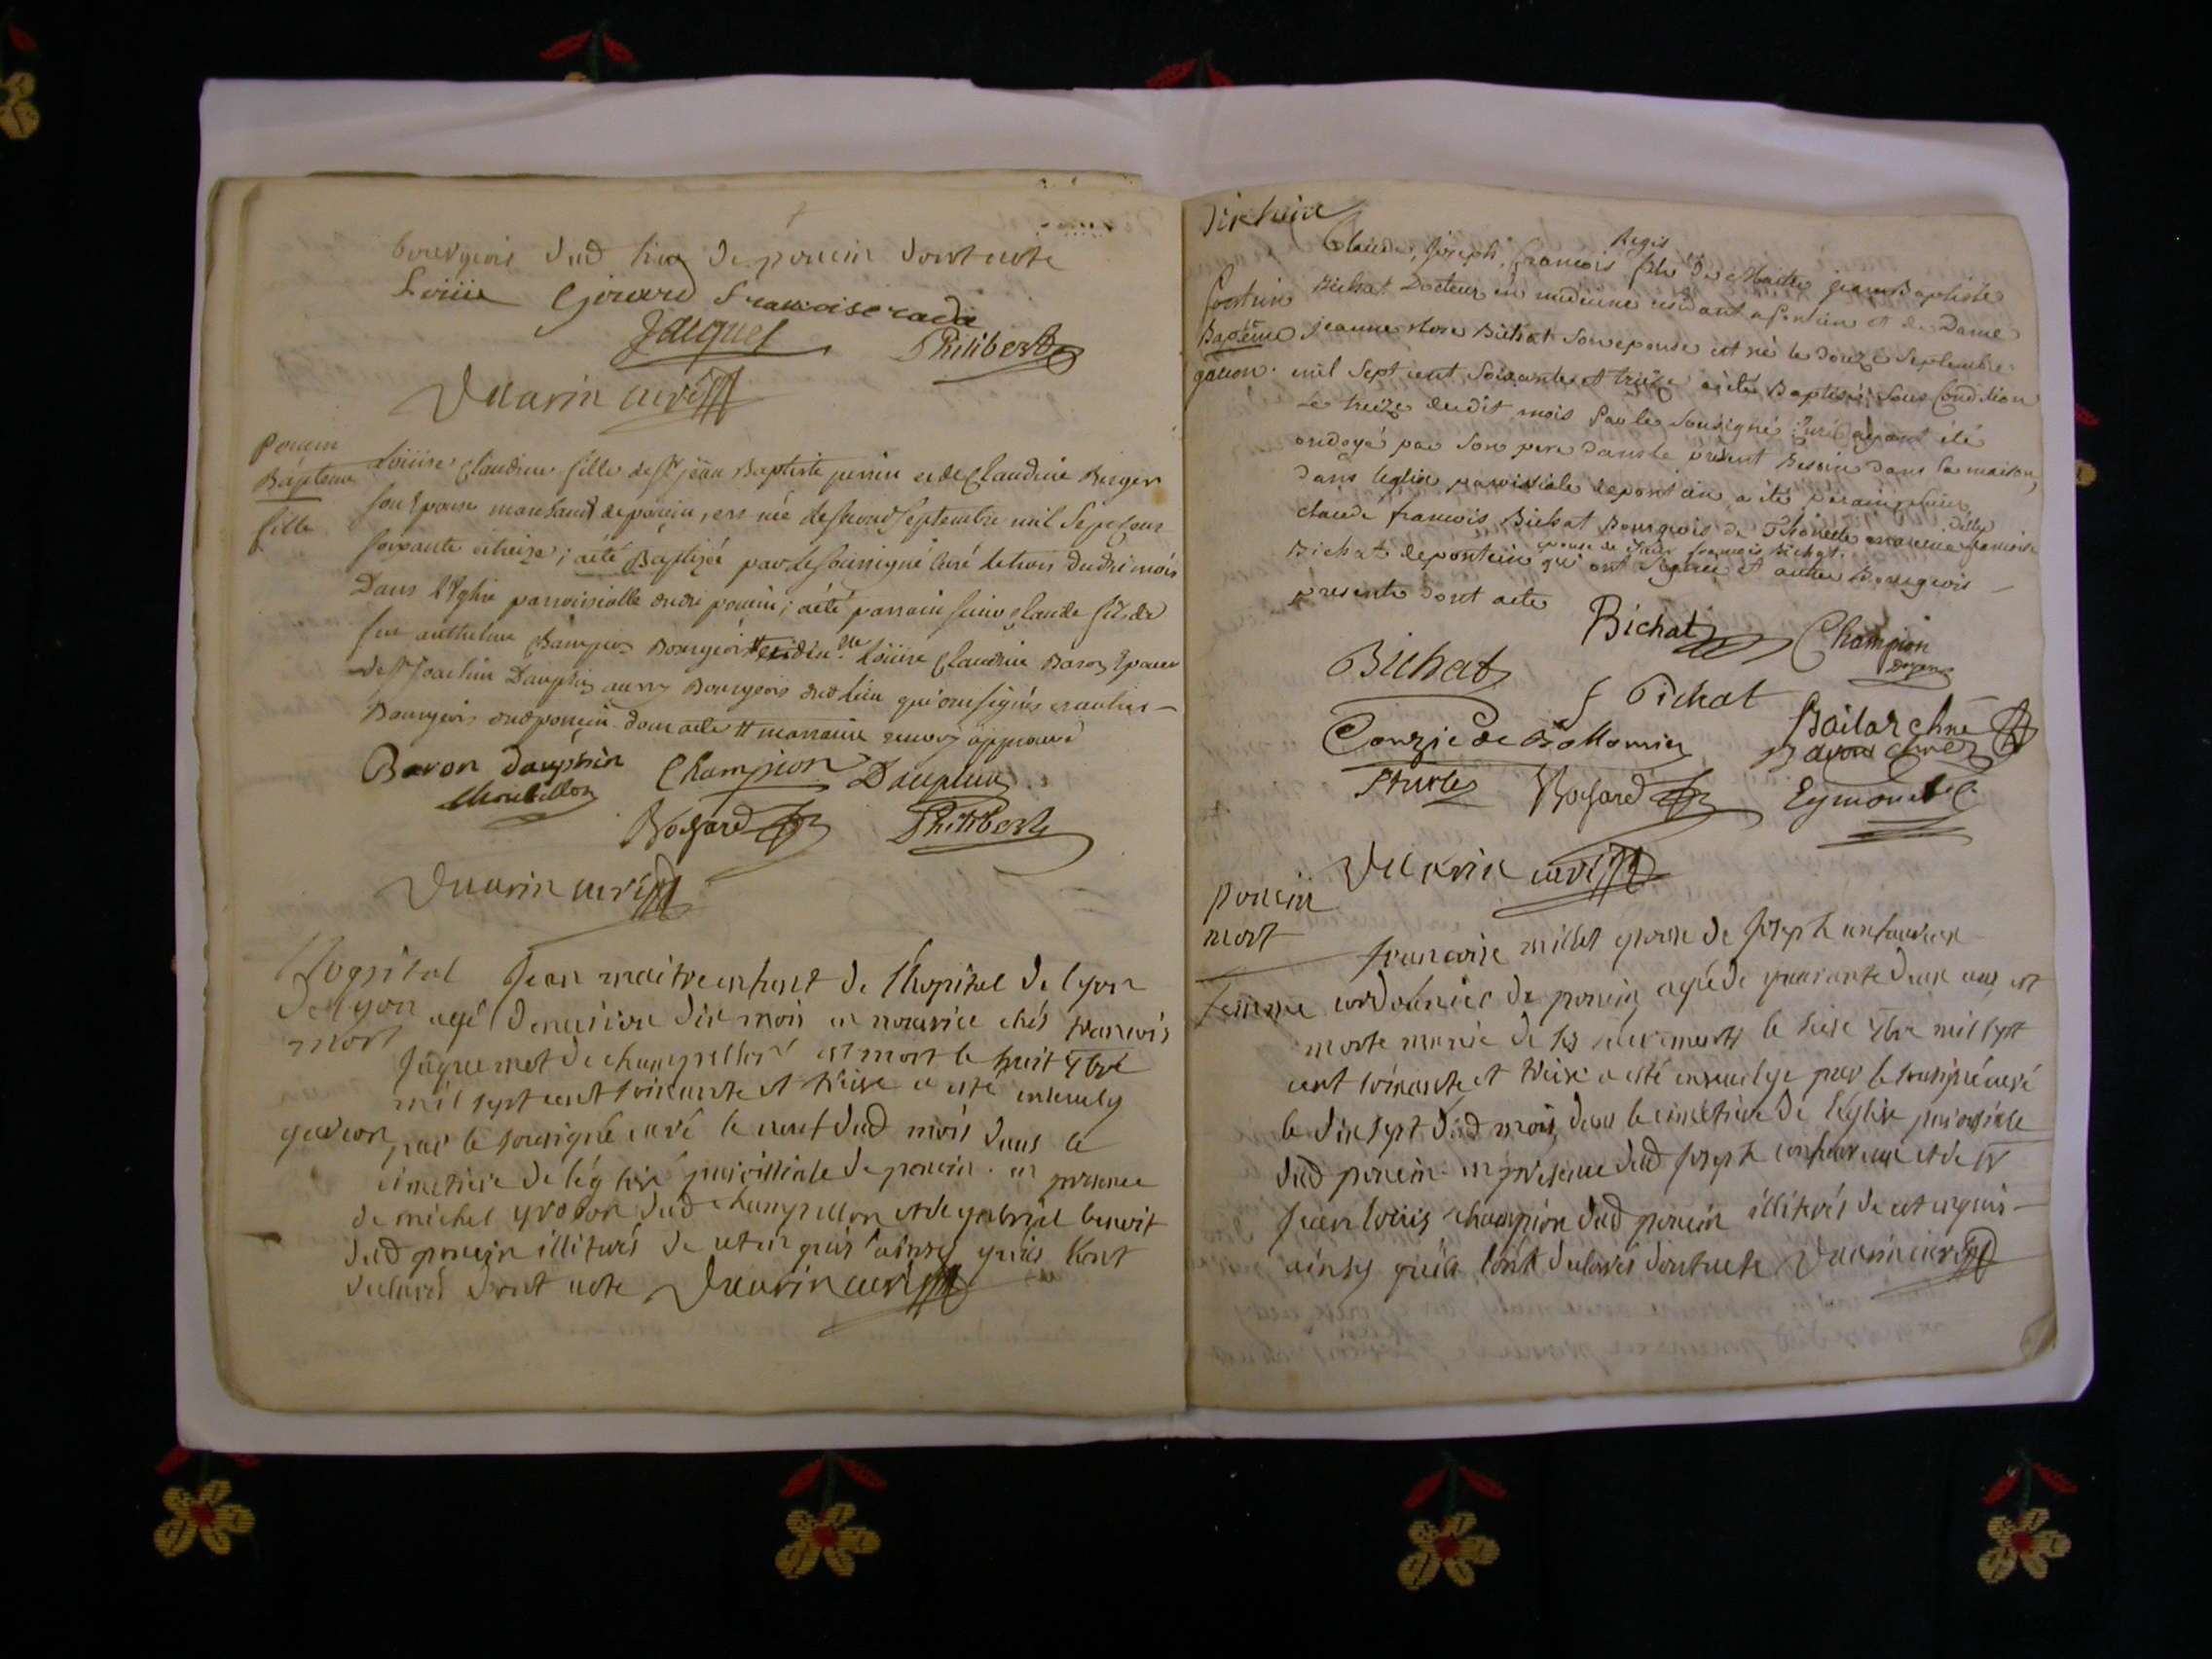 bourgeois dud lieu de poncin dont acte
Louise Girard francoise
Jaquet Philibert
Duarin curé
Poncin
Bapteme
fille
Louise Claudine fille de sr jean Baptiste perrin et de Claudine Berger
son Epouse marchand de poncin, est née le second septembre mil sept cent
soixante et treize; a été Baptizée par le soussigné Curé le trois dudit mois
Dans l'Eglise parroissialle dudit poncin; a été parrain sieur Claude fils de
feu anthelme Champion Bourgeois et dlle Louise Claudine Baron Epouse
de sr Joachim Dauphin aussy Bourgeois dud lieu qui ont signés et autres
Bourgeois dud poncin dont acte # marraine renvoy approuvé
Baron Dauphin Champion Dauphin
Bossard Philibert
Duarin curé
Hospital
de lyon
mort
garcon
Jean maitre enfant de l'hopital de lyon
agé denviron dix mois en nourrice chés francois
Jaquemet de champeillon est mort le huit 7bre
mil sept cent soixante et treize a esté ensevely
par le sousigné curé le neuf dud mois dans le
cimetiere de léglise paroissiale de poncin en presence
de michel dud champeillon et de gabriel benoit
dud poncin illiterés de ce enquis ainsy quils l'ont
declarés dont acte Duarin curé
dix huit
Pontein
Bapteme
garcon
Claude, Joseph, francois Regis fils de Maitre jean Baptiste
Bichat Docteur en médecine residant a Pontein et de Dame
jeanne Rose Bichat son epouse est né le douze Septembre
mil Sept cent Soixante et treize a été Baptisé sous Condition
Le treize dudit mois Par le Sousigné Curé ayant été
ondoyé par son pere dans le présent Besoin dans la maison,
Dans leglise paroissiale de poncin a été parain sieur
claude francois Bichat Bourgeois de et maraine dlle francoise
Bichat de pontein epouse de sieur francois Bichat qui ont signés et autres Bourgeois
presents dont acte
Bichat Champion
Doyen
Bichat f Bichat
Conzié de Bollomier
Bossard Eymonet
Duarin curé
poncin
mort
femme
francoise millet epouse de Joseph
cordonnier de poncin agée de quarante deux ans est
morte munie de ses sacrements le seize 7bre mil sept
cent soixante et treize a esté ensevelye par le sousigné curé
le dix sept dud mois dans le cimetiere de léglise paroissiale
dud poncin en presence dud Joseph et de sr
Jean louis champion dud poncin illiterés de ce enquis
ainsy quils l'ont declarés dont acte Duarin curé